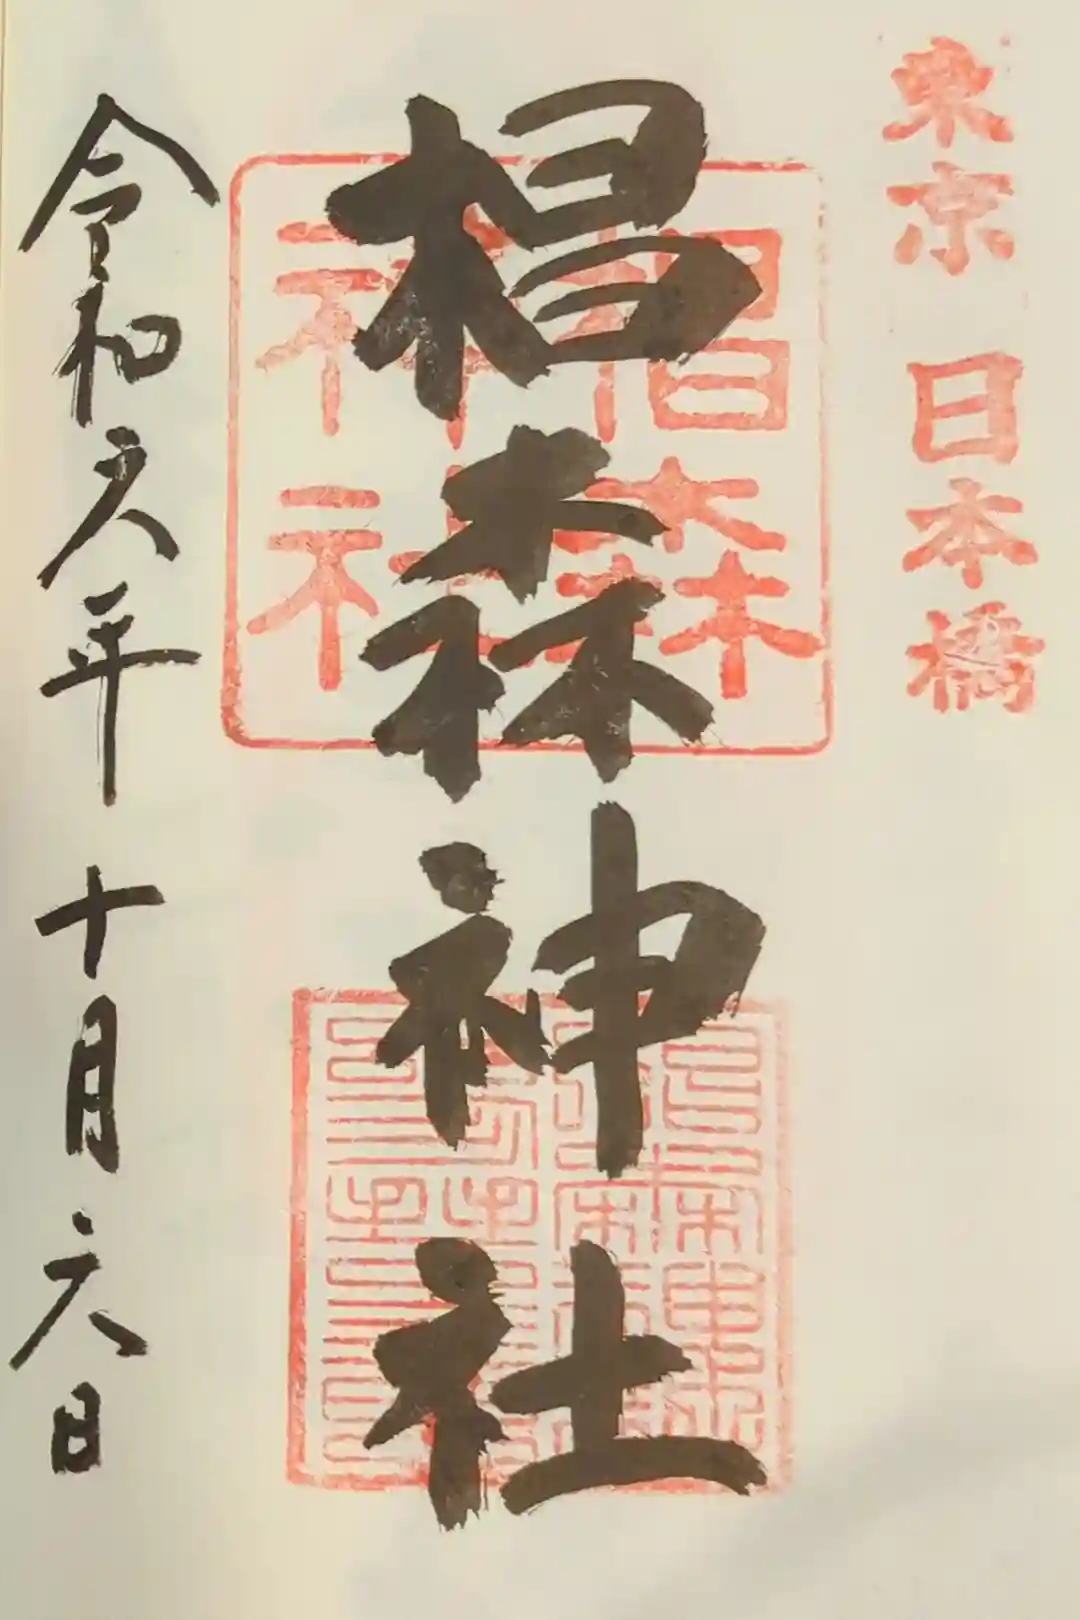 東京 日本橋
椙森神社
椙森
神社
令和六年十月六日